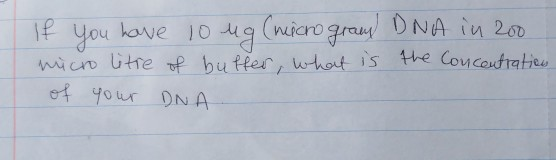 If you have 10 ug (microgram) DNA in 200
micro litre of buffer, what is the Concentration
of your DNA